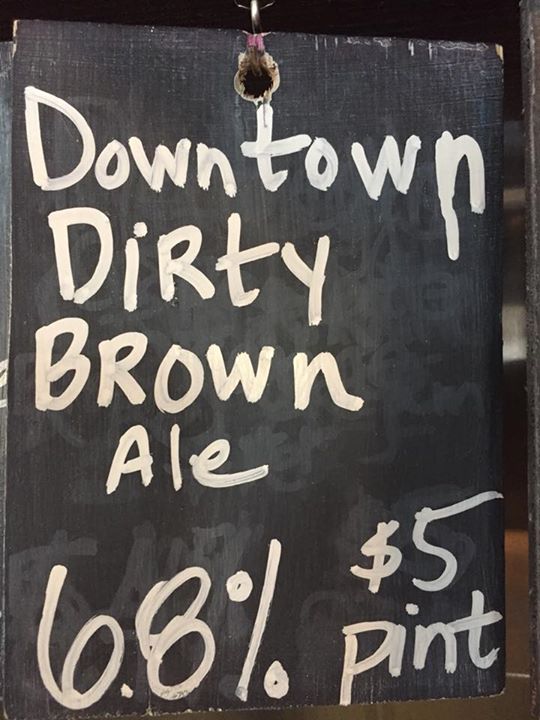 Downtown
DiRty
BROWn
Ale
6.8%
$5
pint